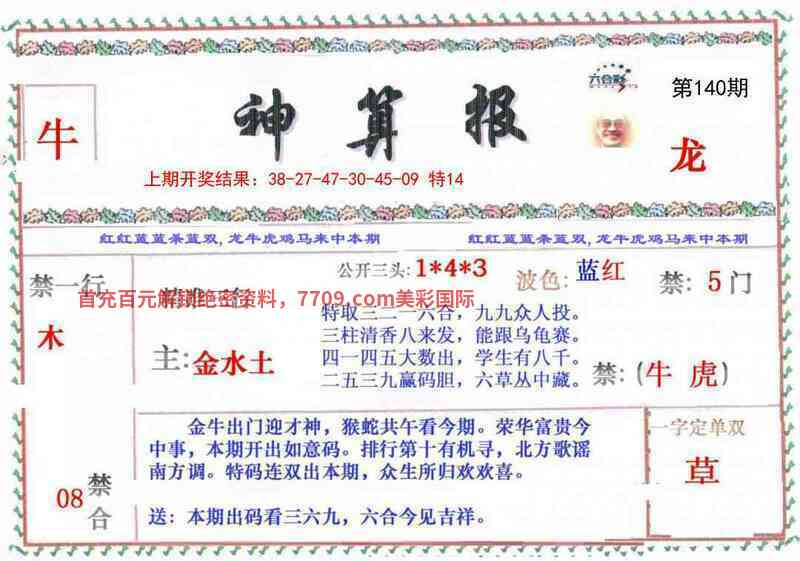 神算报
六合彩
第140期
牛
龙
上期开奖结果：38-27-47-30-45-09 特14
红红蓝蓝条蓝双,龙牛虎鸡马来中本期
红红蓝蓝条蓝双,龙牛虎鸡马来中本期
禁一行
木
首充百元解封绝密资料，7709.com美彩国际
主:金水土
公开三头:1*4*3
波色:蓝红
禁:5门
特取三二一六合，九九众人投。
三柱清香八来发，能跟乌龟赛。
四一四五大数出，学生有八千。
二五三九赢码胆，六草丛中藏。
禁:(牛虎)
金牛出门迎才神，猴蛇共午看今期。荣华富贵今
中事，本期开出如意码。排行第十有机寻，北方歌谣
南方调。特码连双出本期，众生所归欢欢喜。
送：本期出码看三六九，六合今见吉祥。
08
禁合
一字定单双
草